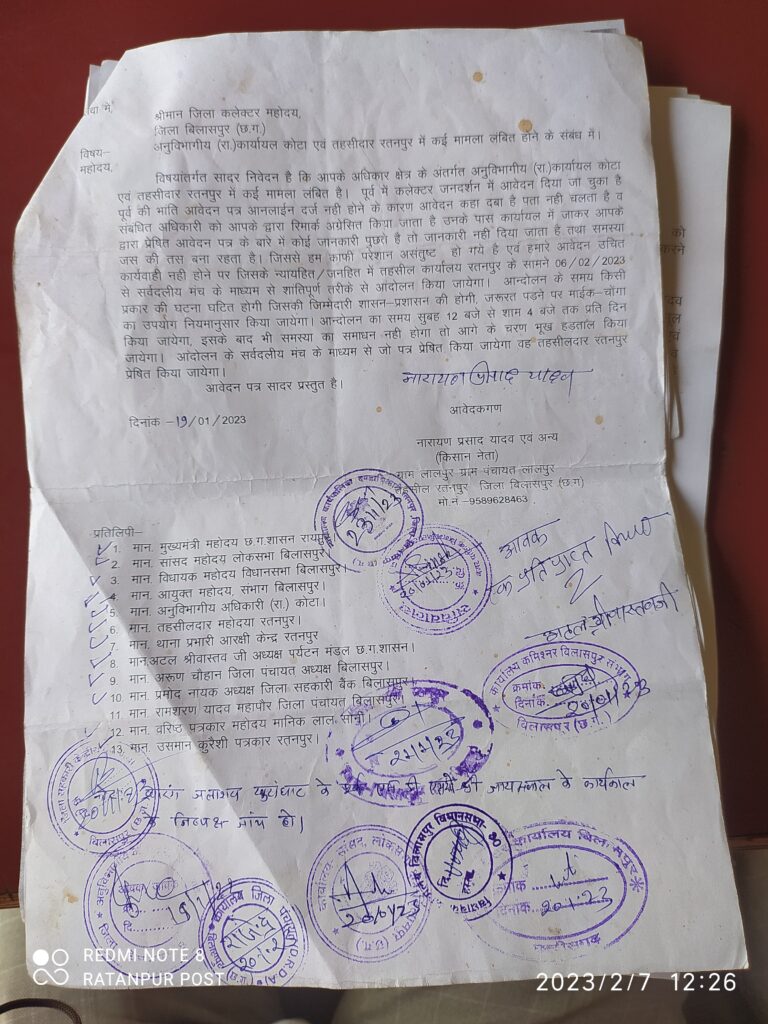 श्रीमान जिला कलेक्टर महोदय,
जिला बिलासपुर (छ.ग.)
विषय– अनुविभागीय (रा.)कार्यायल कोटा एवं तहसीदार रतनपुर में कई मामला लंबित होने के संबंध में।
महोदय,
विषयांतर्गत सादर निवेदन है कि आपके अधिकार क्षेत्र के अंतर्गत अनुविभागीय (रा.)कार्यायल कोटा
एवं तहसीदार रतनपुर में कई मामला लंबित है। पूर्व में कलेक्टर जनदर्शन में आवेदन दिया जा चुका है
पूर्व की भांति आवेदन पत्र आनलाईन दर्ज नही होने के कारण आवेदन कहा दबा है पता नही चलता है व
संबधित अधिकारी को आपके द्वारा रिमार्क अग्रेसित किया जाता है उनके पास कार्यायल में जाकर आपके
द्वारा प्रेषित आवेदन पत्र के बारे में कोई जानकारी पुछते है तो जानकारी नही दिया जाता है तथा समस्या
जस की तस बना रहता है। जिससे हम काफी परेशान असंतुष्ट हो गये है एवं हमारे आवेदन उचित
कार्यवाही नही होने पर जिसके न्यायहित/जनहित में तहसील कार्यालय रतनपुर के सामने 06/02/2023
से सर्वदलीय मंच के माध्यम से शांतिपूर्ण तरीके से आंदोलन किया जायेगा। आन्दोलन के समय किसी
प्रकार की घटना घटित होगी जिसकी जिम्मेदारी शासन–प्रशासन की होगी, जरूरत पडने पर माईक–चोंगा
का उपयोग नियमानुसार किया जायेगा। आन्दोलन का समय सुबह 12 बजे से शाम 4 बजे तक प्रति दिन
किया जायेगा, इसके बाद भी समस्या का समाधन नही होगा तो आगे के चरण भूख हडताल किया
जायेगा। आंदोलन के सर्वदलीय मंच के माध्यम से जो पत्र प्रेषित किया जायेगा वह तहसीलदार रतनपुर
प्रेषित किया जायेगा।
आवेदन पत्र सादर प्रस्तुत है।
नारायण प्रसाद यादव
दिनांक –19/01/2023
आवेदकगण
नारायण प्रसाद यादव एवं अन्य
(किसान नेता)
ग्राम लालपुर ग्राम पंचायत लालपुर
तहसील रतनपुर जिला बिलासपुर (छ.ग)
मो.नं.–9589628463
प्रतिलिपी–
1. मान. मुख्यमंत्री महोदय छ.ग.शासन रायपुर
2. मान. सासद महोदय लोकसभा बिलासपुर।
3. मान. विधायक महोदय विधानसभा बिलासपुर।
4. मान. आयुक्त महोदय, संभाग बिलासपुर।
5. मान. अनुविभागीय अधिकारी (रा.) कोटा।
6. मान. तहसीलदार महोदया रतनपुर।
7. मान. थाना प्रभारी आरक्षी केन्द्र रतनपुर
8. मान.अटल श्रीवास्तव जी अध्यक्ष पर्यटन मंडल छ.ग.शासन।
9. मान. अरूण चौहान जिला पंचायत अध्यक्ष बिलासपुर।
10. मान. प्रमोद नायक अध्यक्ष जिला सहकारी बैंक बिलासपुर
11. मान. रामशरण यादव महापौर जिला पंचायत बिलासपुर
12. मान. वरिष्ठ पत्रकार महोदय मानिक लाल सोनी।
13. मान. उसमान कुरैशी पत्रकार रतनपुर।
आवक
एक प्रति प्राप्त किया
अटल श्रीवास्तव जी
23/1/23
कार्यालय कमिश्नर बिलासपुर संभाग
क्रमांक
दिनांक 20/01/23
बिलासपुर (छ.ग.)
के निष्पक्ष जांच हो।
कार्यालय जिला पंचायत
कार्यालय, सांसद, लोकसभा
20/01/23
बिलासपुर विधानसभा-30
कार्यालय बिलासपुर
दिनांक 20.1.23
REDMI NOTE 8
RATANPUR POST
2023/2/7 12:26